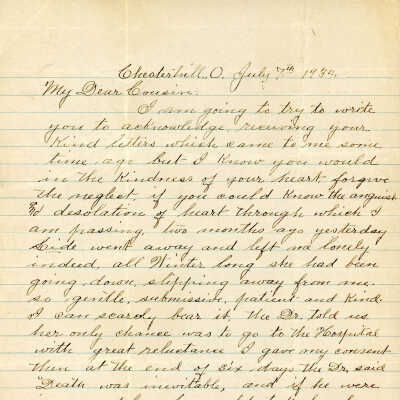 Chesterhill, O. July 7th 1932.
My Dear Cousin:
I am going to try to write
you to acknowledge, receiving your
Kind letters which came to me some
time ago but I know you would
in the Kindness of your heart forgive
the neglect, if you could know the anguish
& desolation of heart through which I
am passing, two months ago yesterday
went away and left me lonely
indeed, all Winter long she had been
going down, slipping away from me.
so gentle, submissive, patient and kind.
I can scarcely bear it, the Dr. told us
her only chance was to go to the Hospital
with great reluctance I gave my consent
then at the end of six days the Dr. said
"Death was inevitable, and if he were